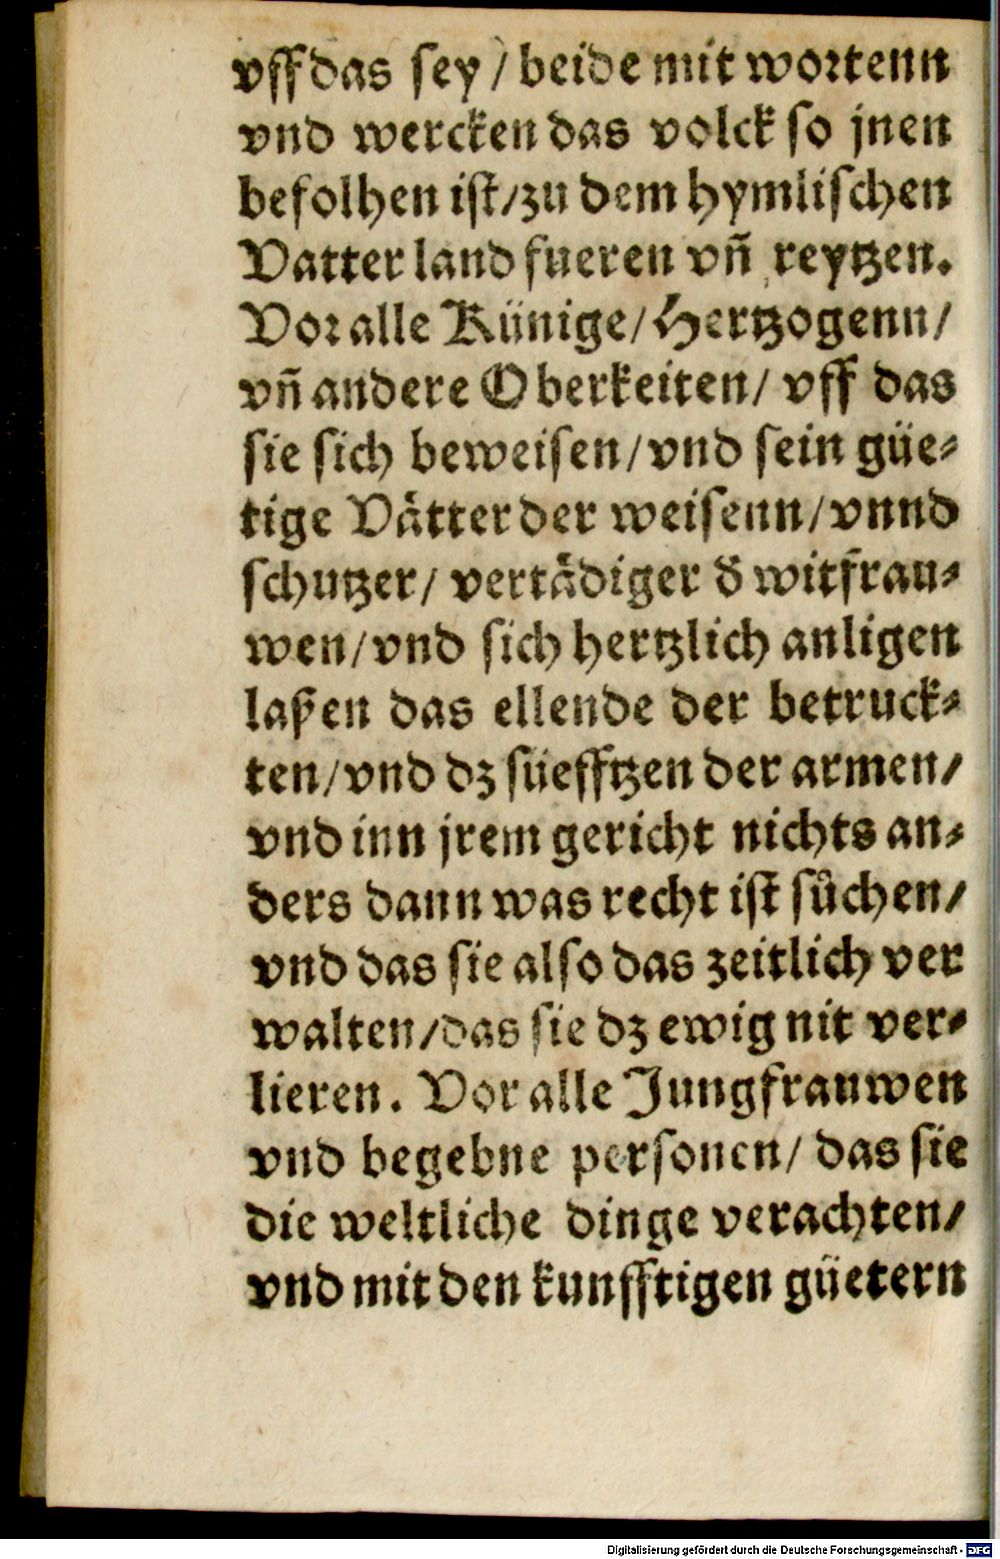 vff das sey / beide mit wortenn
vnd wercken das volck so jnen
befolhen ist / zu dem hymlischen
Vatter land fueren vn̄ reytzen.
Vor alle Künige / Hertzogenn /
vn̄ andere Oberkeiten / vff das
sie sich beweisen / vnd sein güe⸗
tige Vaͤtter der weisenn / vnnd
schutzer / vertaͤdiger đ witfrau⸗
wen / vnd sich hertzlich anligen
laßen das ellende der betruck⸗
ten / vnd dz süefftzen der armen /
vnd inn jrem gericht nichts an⸗
ders dann was recht ist sůchen /
vnd das sie also das zeitlich ver
walten / das sie dz ewig nit ver⸗
lieren. Vor alle Jungfrauwen
vnd begebne personen / das sie
die weltliche dinge verachten /
vnd mit den kunfftigen güetern
Digitalisierung gefördert durch die Deutsche Forschungsgemeinschaft - DFG